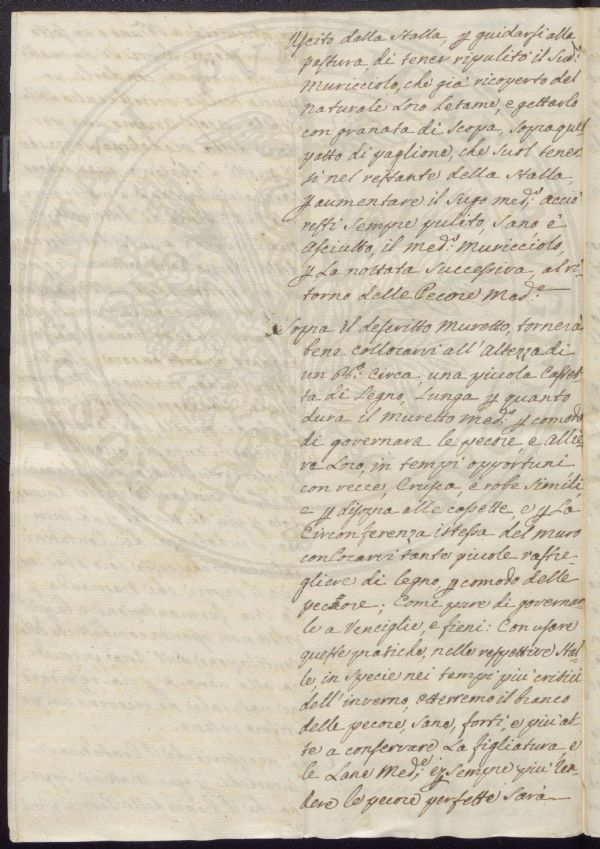 Uscito dalla Stalla, p guidarsi alla
pastura di tener ripulito il Sud:
Muricciolo, che già ricoperto del
naturale Loro letame, e gettarlo
con granata di Scopa, sopra quel
patto di paglione, che suol tener
si nel restante della Stalla,
p aumentare il Sugo med:o acciò
resti Sempre pulito, Sano è
Asciutto, il med:o Muricciolo,
p La nottata Successiva, al ri
torno delle Pecore Mad:e
Sopra il descritto Muretto, tornerà
bene collocarvi all' Altezza di
un circa, una piccola Cassett
ta di Legno, Lunga p quanto
dura il Muretto med:o p comodo
di governara le pecore, e Allie
va Loro, in tempi opportuni
con vecce, Crusca, e robe Simili,
e p disopra alle cassette, e p La
Circonferenza istessa del muro
conlocarvi tante piccole rastre
gliere di legno, p comodo delle
pecore; Come pure di governar
le a Venciglie, e fieni: Con usare
queste pratiche, nelle respettive Stal
le in Specie nei tempi più critici
dell' inverno, otterremo il branco
delle pecore, Sano, forti, e più at
te a conservare La figliatura, e
le Lane Med:e e p Sempre più ren
dere le pecore perfette Sarà